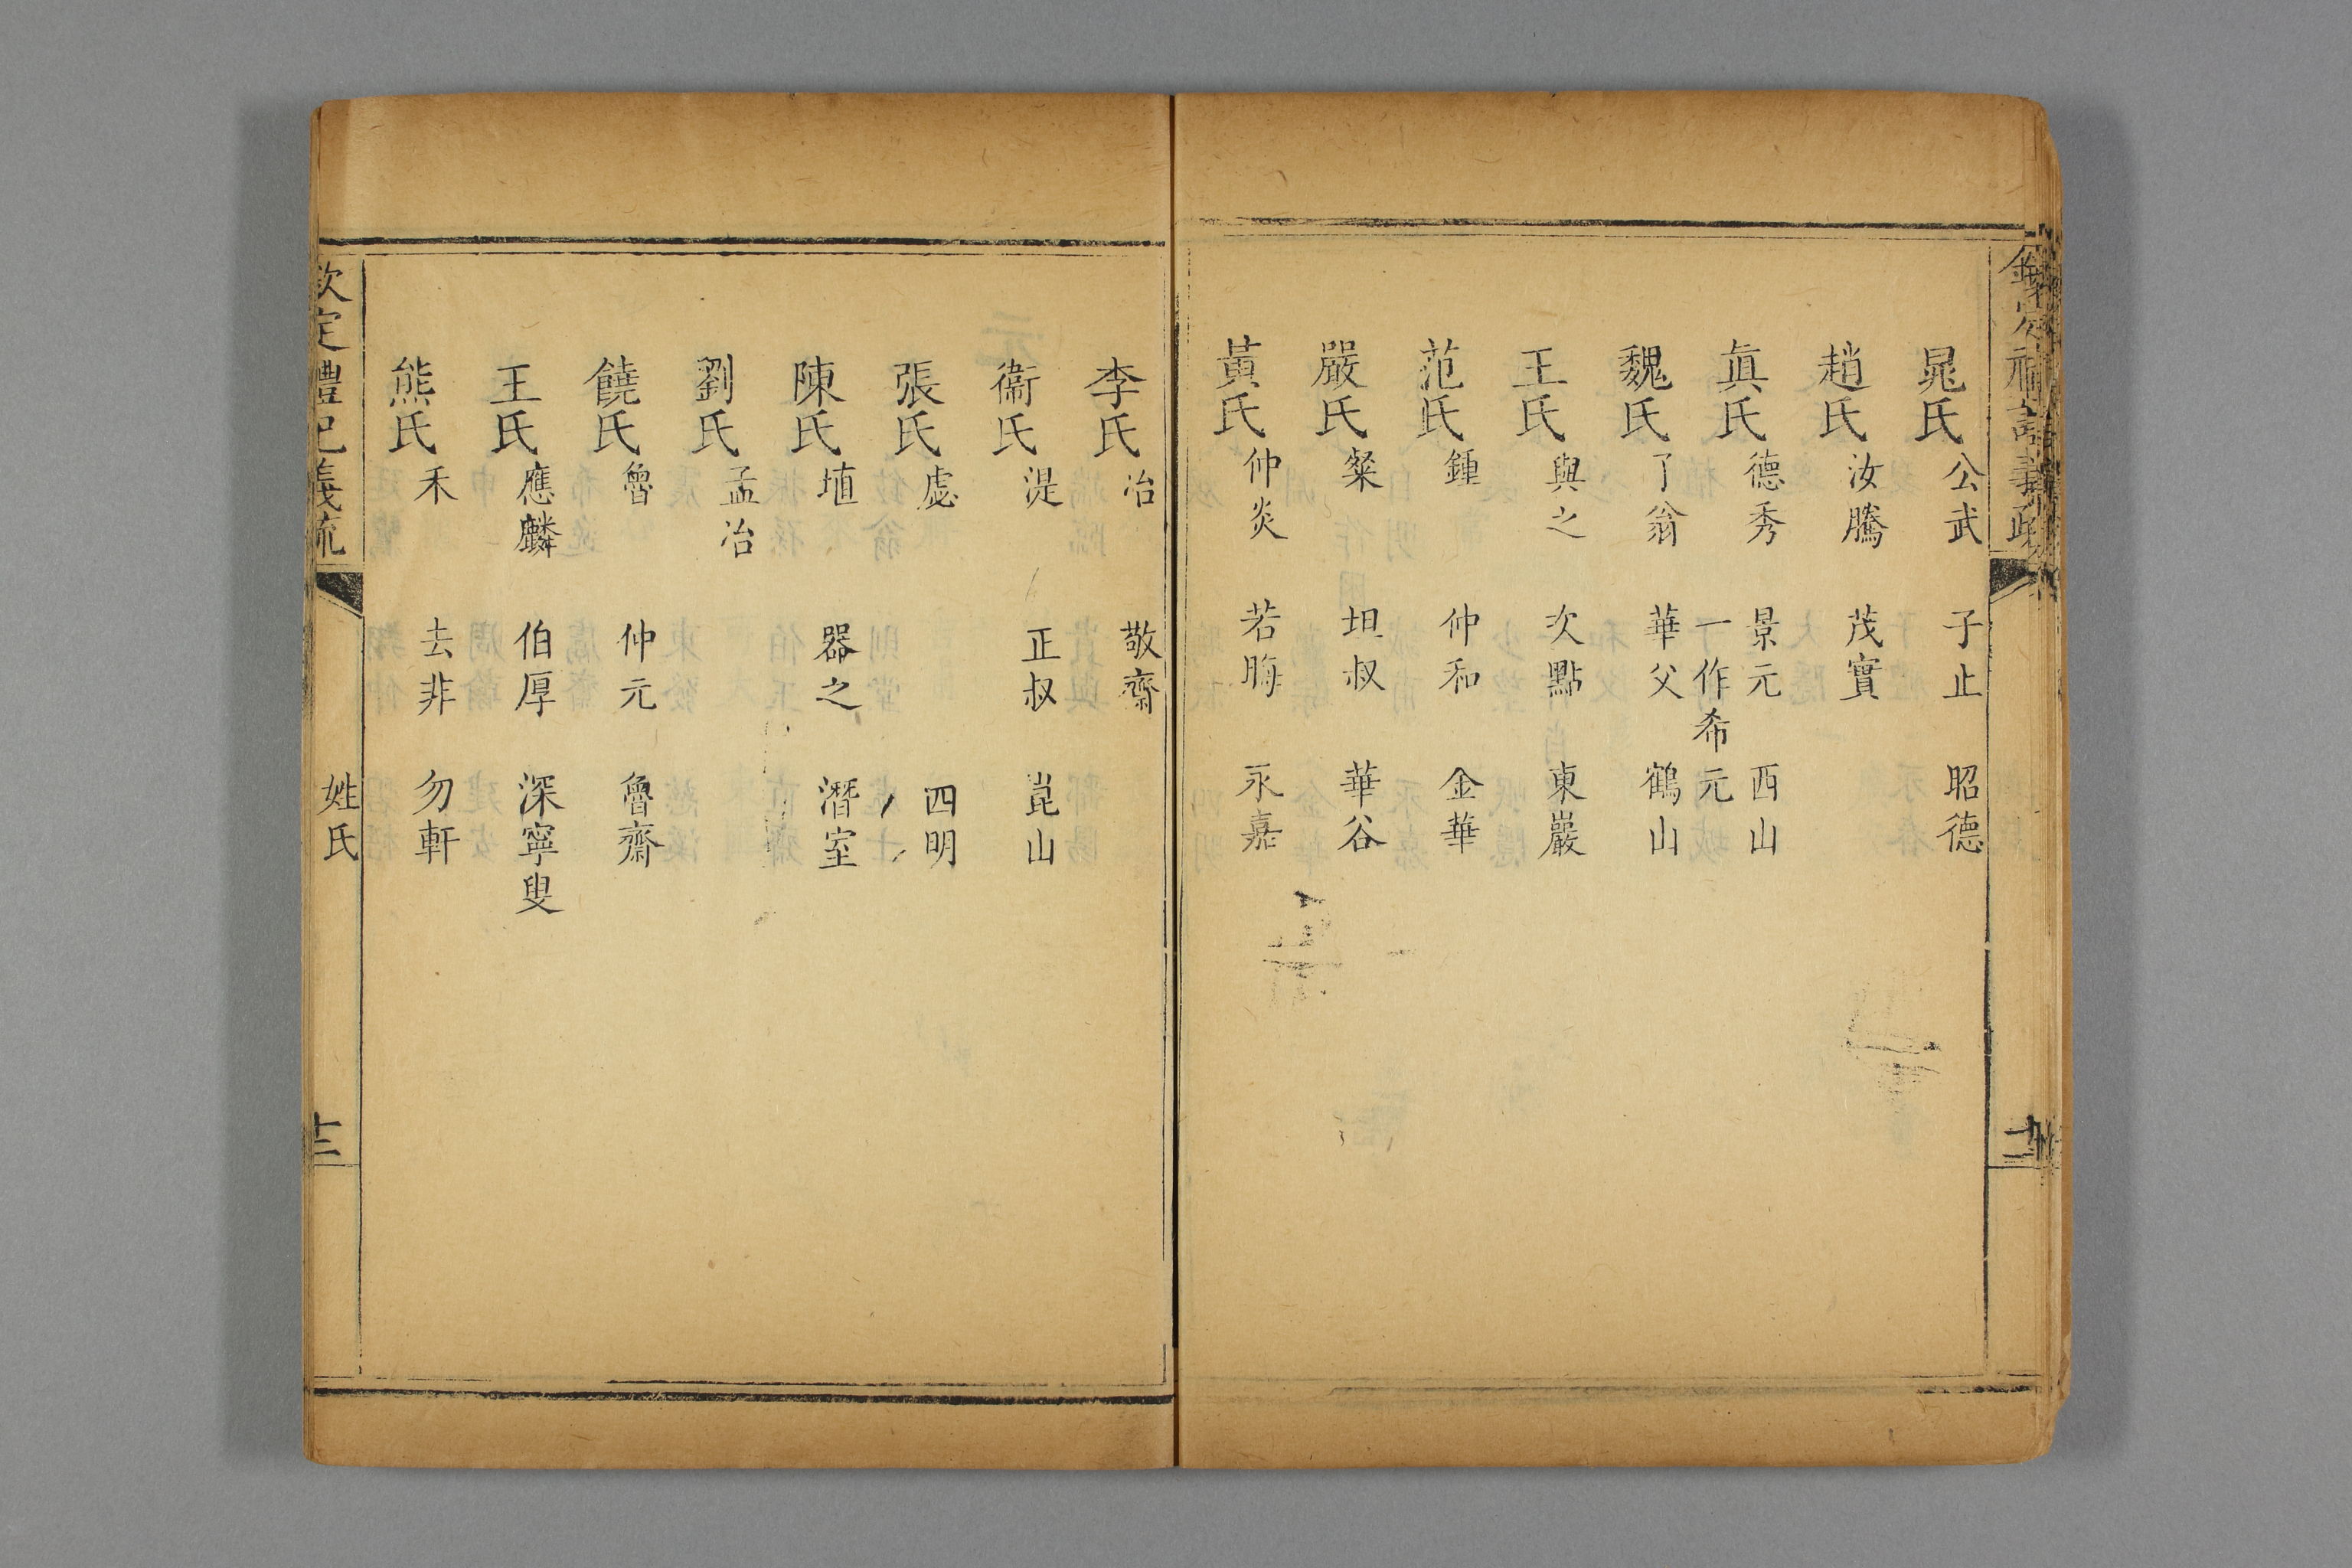 晁氏 公武 子止 昭德
趙氏 汝騰 茂實
真氏 德秀 景元 一作希元 西山
魏氏 了翁 華父 鶴山
王氏 與之 次點 東巖
范氏 鍾 仲和 金華
嚴氏 粲 坦叔 華谷
黃氏 仲炎 若晦 永嘉
李氏 冶 敬齋
衞氏 湜 正叔 崑山
張氏 虙 四明
陳氏 埴 器之 潛室
劉氏 孟冶
饒氏 魯 仲元 魯齋
王氏 應麟 伯厚 深寧叟
熊氏 禾 去非 勿軒
欽定禮記義疏 姓氏 十三